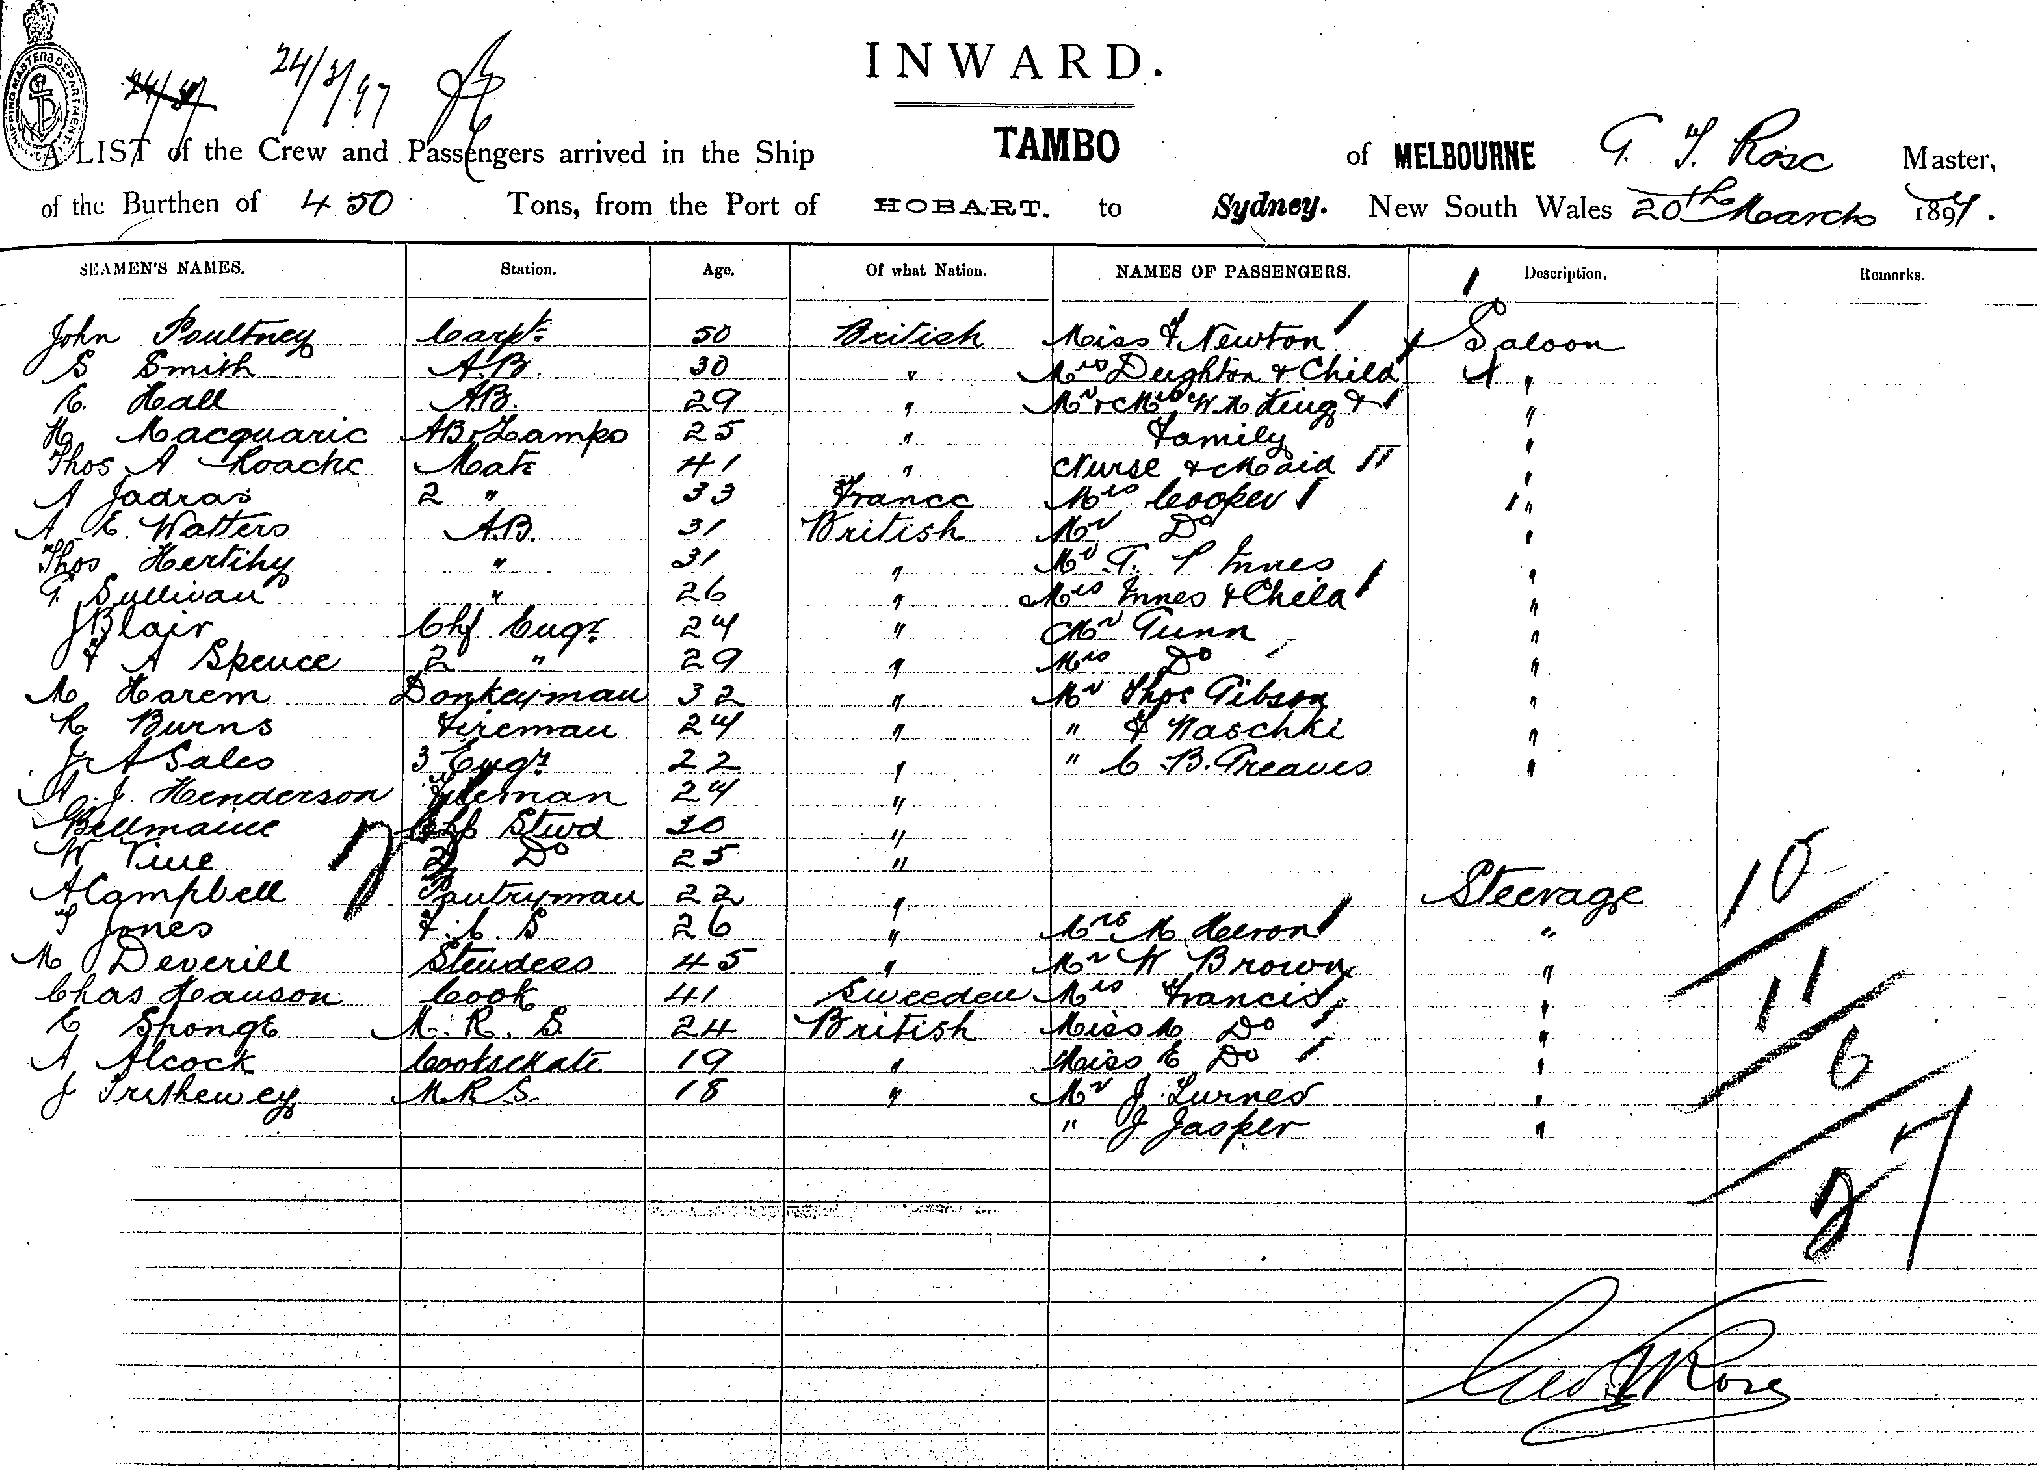 SHIPPING MASTERS DEPARTMENT
24/3/97
INWARD.
A LIST of the Crew and Passengers arrived in the Ship TAMBO of MELBOURNE G. T. Rose Master,
of the Burthen of 450 Tons, from the Port of HOBART. to Sydney. New South Wales 20th March 1897.
SEAMEN'S NAMES. Station. Age. Of what Nation. NAMES OF PASSENGERS. Description. Remarks.
John Poultney Carptr 50 British Miss F Newton Saloon
S Smith A.B. 30 " Mrs Deighton & Child "
E. Hall A.B. 29 " Mr & Mrs W M King & "
H. Macquarie AB & Lamps 25 " Family "
Thos A Roache Mate 41 " Nurse & Maid "
A Jadras 2 " 33 France Mrs Cooper "
A E. Watters A.B. 31 British Mr Do "
Thos Hertihy " 31 " Mr G. P Innes "
G Sullivan " 26 " Mrs Innes & Child "
J Blair Chf Engr 24 " Mr Gunn "
F A Spence 2 " 29 " Mrs Do "
M Harem Donkeyman 32 " Mr Thos Gibson "
H Burns Fireman 24 " " F Waschki "
J A Sales 3 Engr 22 " " C. B. Greaves "
A. J. Henderson Fireman 24 "
Bellmaine Chf Stwd 30 "
W Vine 2 Do 25 "
A Campbell Pantryman 22 " Steerage 10
T Jones F. C. S 26 " Mrs M Heron "
M Deverill Stewdess 45 " Mr W Brown " 11
Chas Hanson Cook 41 Sweeden Mrs Francis "
E Sponge M. R. S. 24 British Miss M Do " 6
A Alcock Cooks Mate 19 " Miss E Do "
J Trethewey M.R.S. 18 " Mr J. Turner "
" J Jasper "
27
Geo T Rose